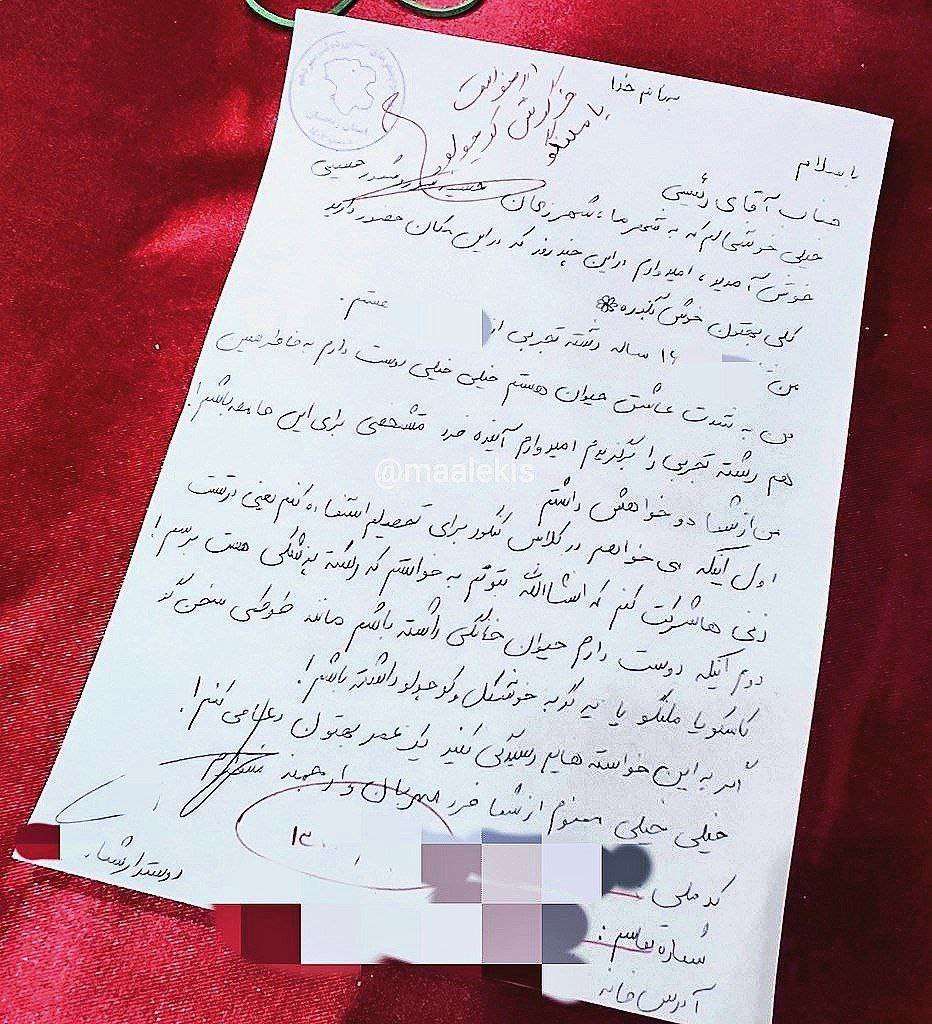 به نام خدا
با سلام
جناب آقای رئیسی
خیلی خوشحالم که به شهر ما، شهر زنجان
خوش آمدید، امیدوارم در این چند روز که در این مکان حضور دارید
کلی بهتون خوش بگذره
من ۱۶ ساله رشته تجربی از هستم.
من به شدت عاشق حیوان هستم خیلی خیلی دوست دارم به خاطر همین
هم رشته تجربی را برگزیدم امیدوارم آینده فرد مشخصی برای این جامعه باشم!
من از شما دو خواهش داشتم
اول اینکه می خواهم در کلاس کنکور برای تحصیلم استفاده کنم یعنی درتست
زنی ها شرکت کنم که انشاالله بتونم به خواستم که رشته پزشکی هست برسم!
دوم اینکه دوست دارم حیوان خانگی داشته باشم مانند طوطی سخن گو
کاسکو یا ملنگو یا یه گربه خوشگل و کوچولو داشته باشم!
اگر به این خواسته هایم رسیدگی کنید یک عمر بهتون دعا می کنم!
خیلی خیلی ممنونم از شما فرد مهربان و ارجمند
دوستدار شما
کد ملی
شماره تماس:
آدرس خانه
@maalekis